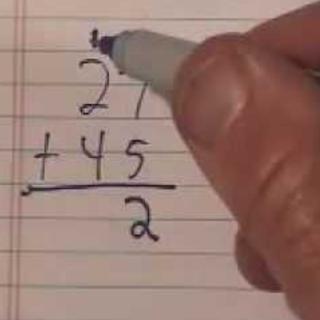 27
+ 45
2